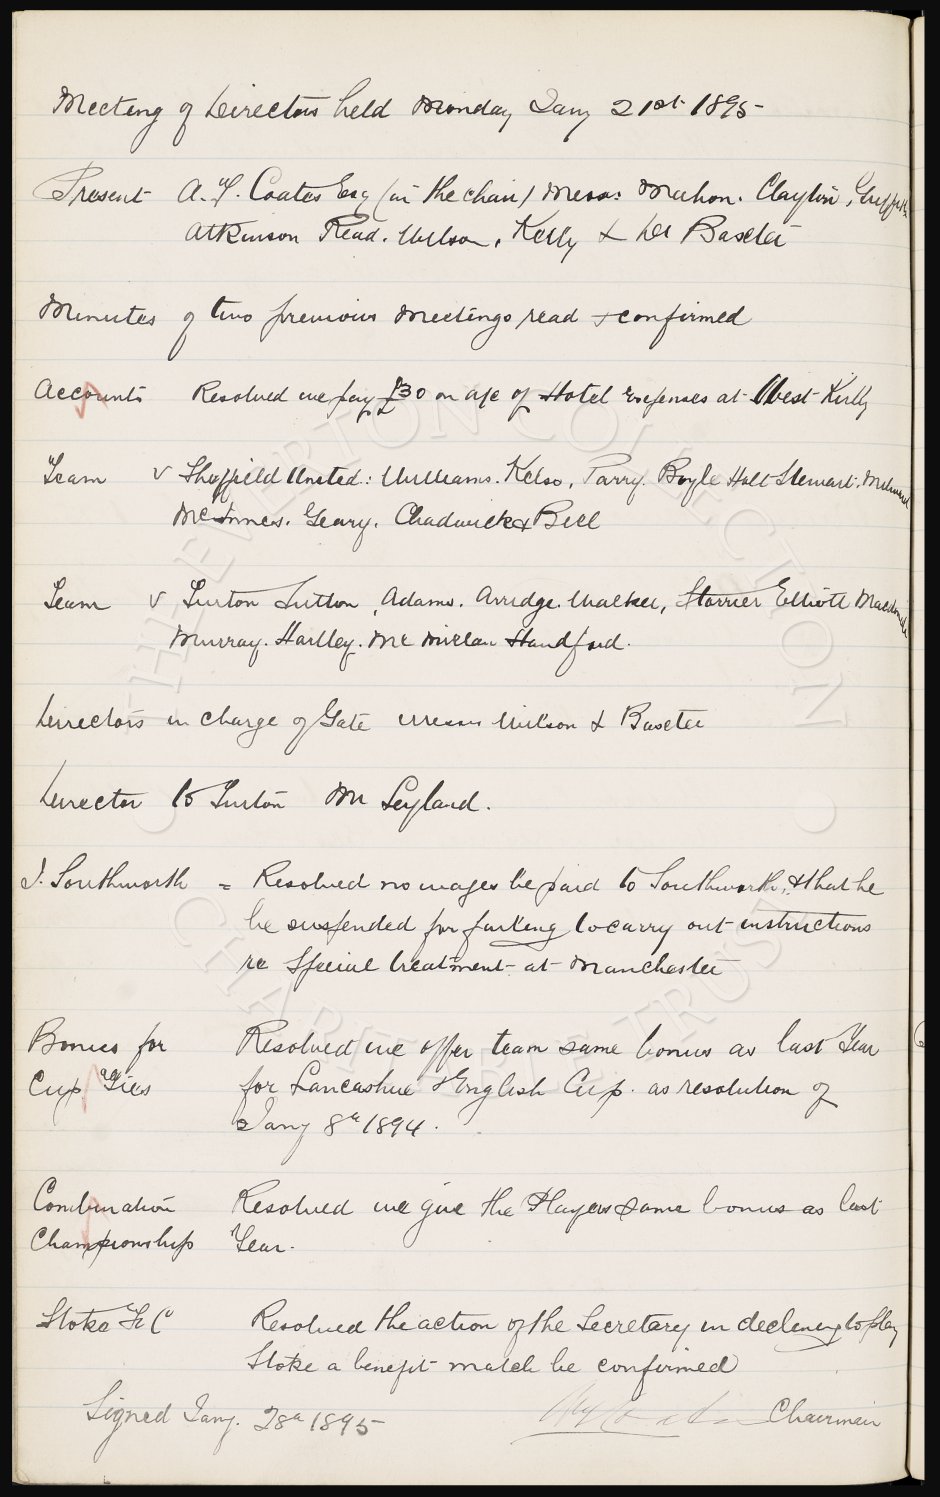 Meeting of Directors held Monday Jany 21st 1895
Present A. T. Coates Esq (in the chair) Messrs Mahon. Clayton, Griffiths
Atkinson Read. Wilson, Kelly & Dr Baxter
Minutes of two previous Meetings read & confirmed
Accounts Resolved we pay £30 on a/c of Hotel Expenses at West Kirby
Team v Sheffield United: Williams. Kelso, Parry. Boyle Holt Stewart. Milward
McInnes. Geary. Chadwick & Bell
Team v Turton Sutton, Adams. Arridge. Walker, Storrier Elliott
Murray. Hartley. McMillan Handford.
Directors in charge of Gate Messrs Wilson & Baxter
Director to Turton Mr Leyland.
J. Southworth = Resolved no wages be paid to Southworth, & that he
be suspended for failing to carry out instructions
re Special treatment at Manchester
Bonus for Resolved we offer team same bonus as last Year
Cup Ties for Lancashire & English Cup. as resolution of
Jany 8th 1894.
Combination Resolved we give the Players same bonus as last
Championship Year.
Stoke F C Resolved the action of the Secretary in declining to play
Stoke a benefit match be confirmed
Signed Jany. 28th 1895 Chairman
THE EVERTON COLLECTION
CHARITABLE TRUST